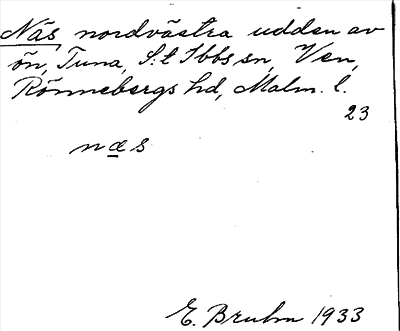 Näs nordvästra udden av
ön, Tuna, S:t Ibbs sn, Ven,
Rönnebergs hd, Malm. l.
23
næs
E. Bruhn 1933